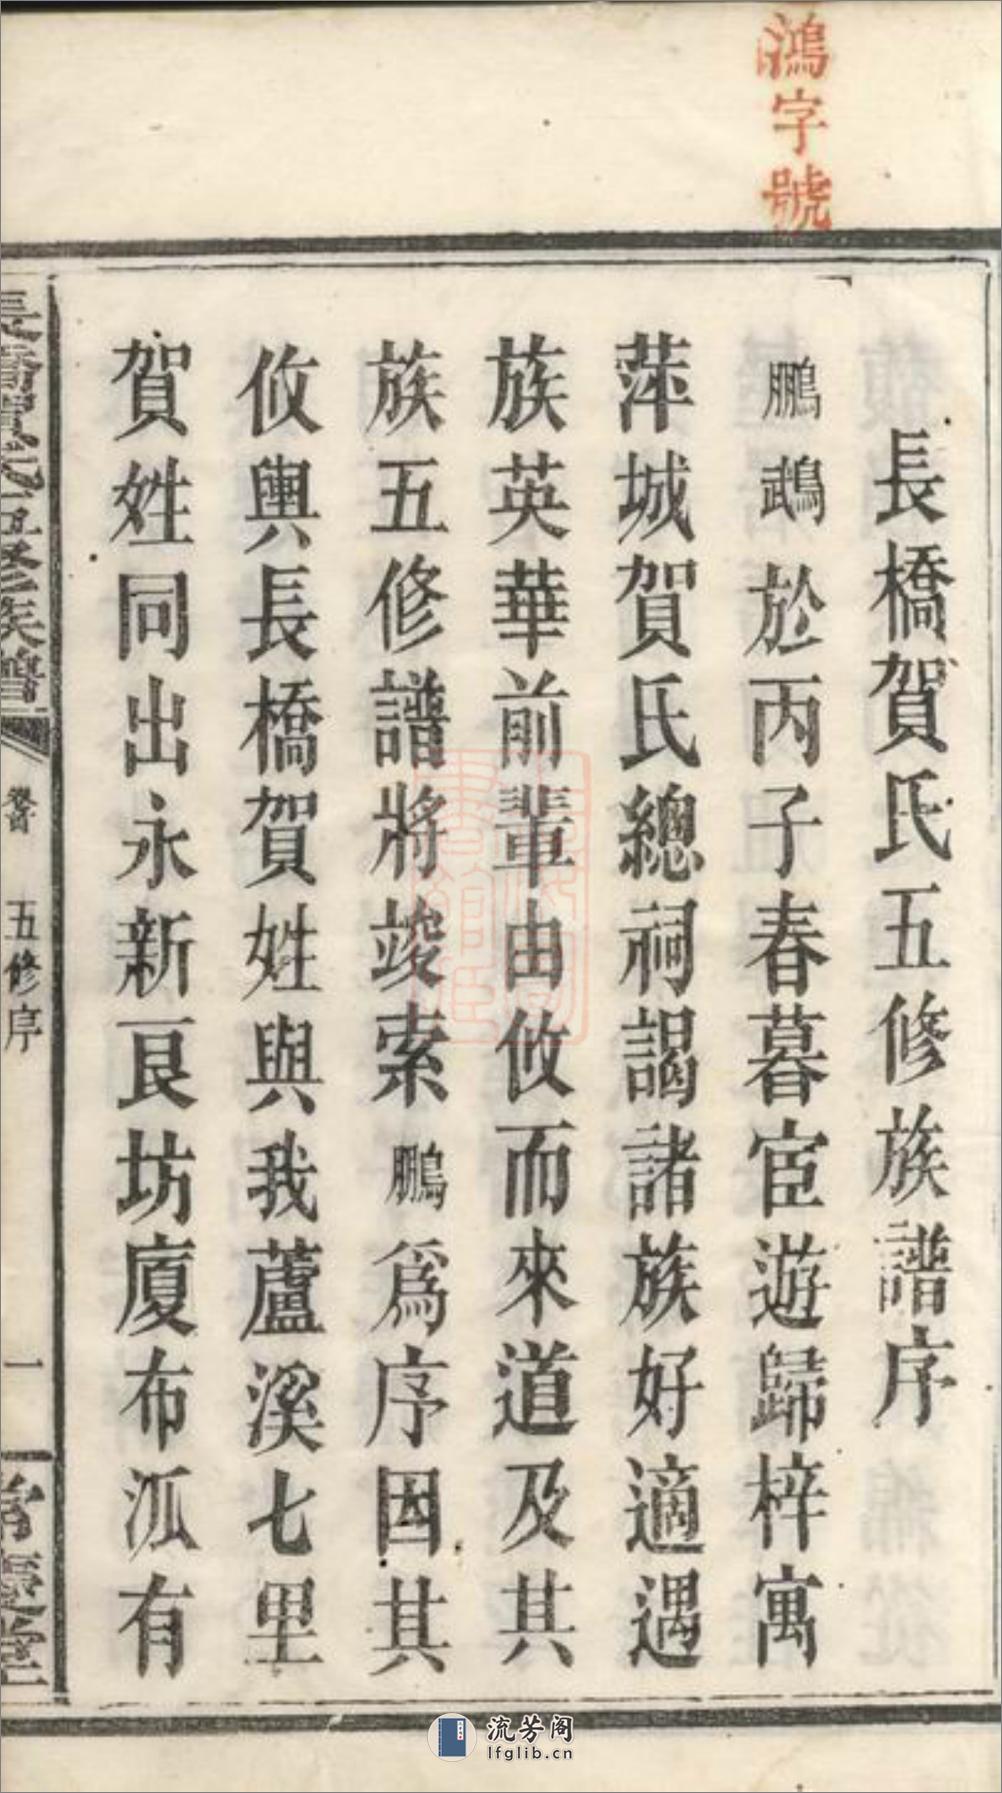 鴻字號
長橋賀氏五修族譜序
鵬鵡於丙子春暮宦遊歸梓寓
萍城賀氏總祠謁諸族好適遇
族英華前輩由攸而來道及其
族五修譜將竣索鵬為序因其
攸與長橋賀姓與我蘆溪七里
賀姓同出永新良坊廈布泒有
長橋賀氏五修族譜
五修序
一
流芳阁
lfglib.cn